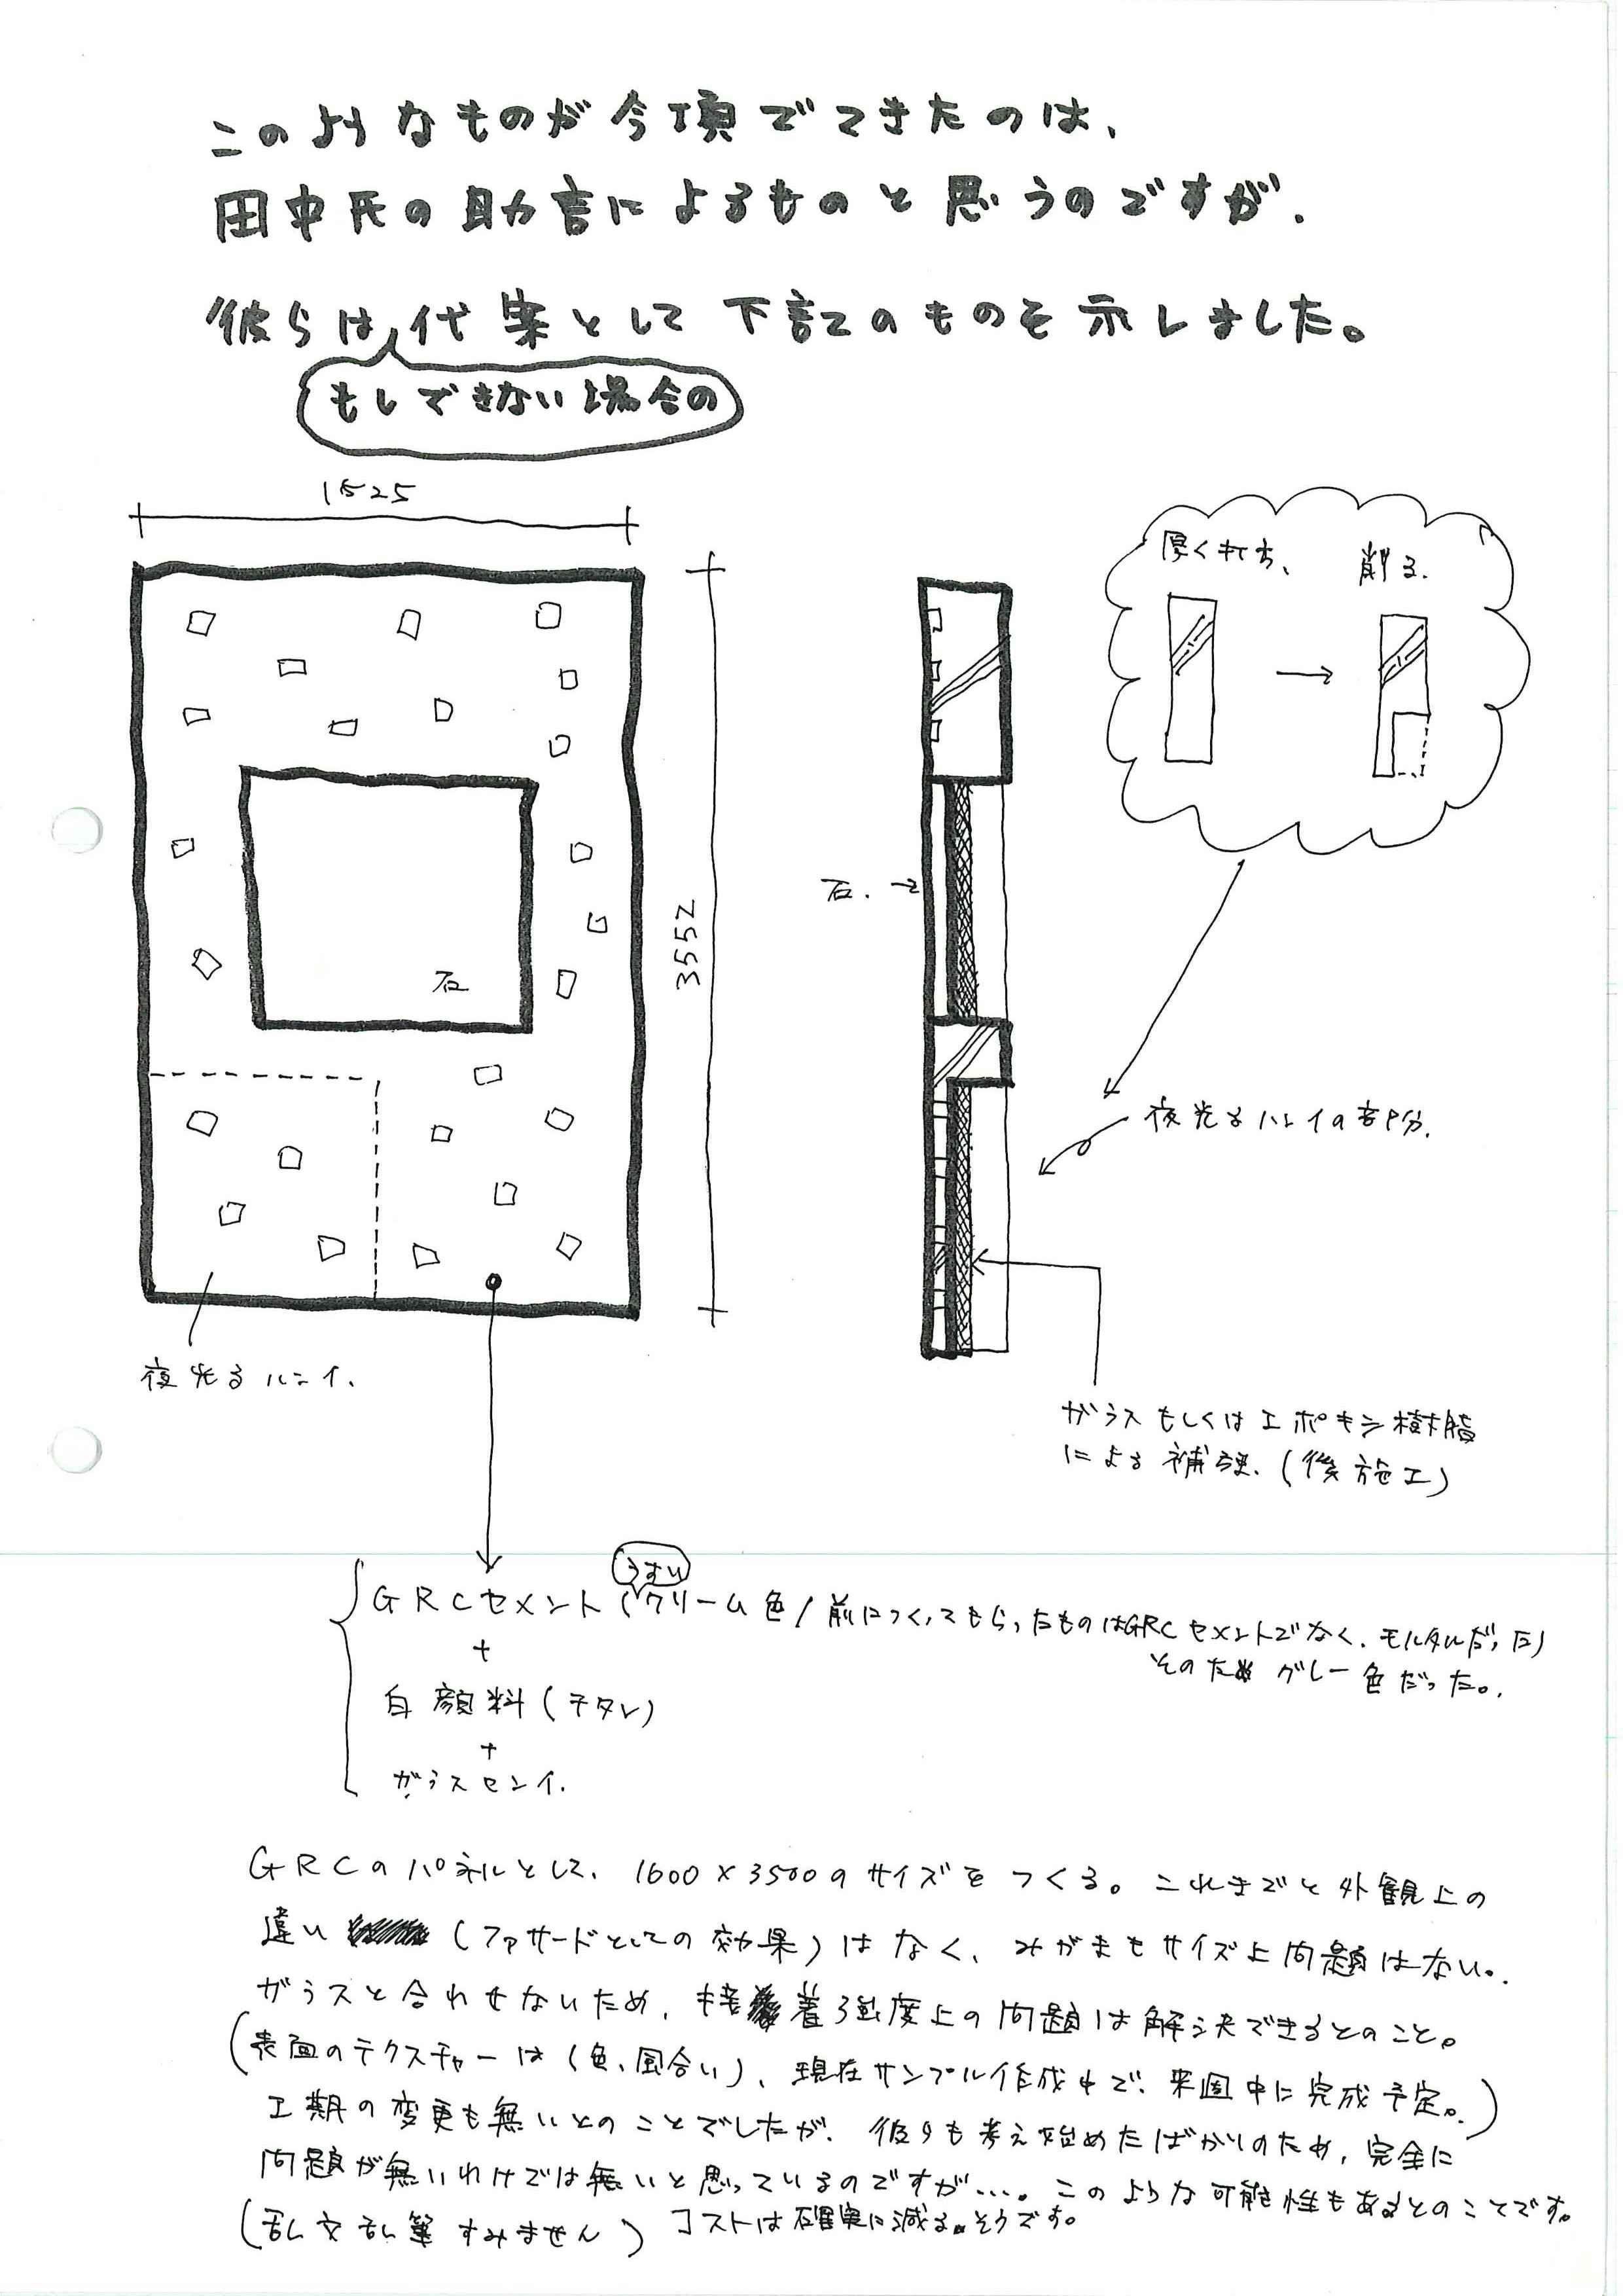 このようなものが今頃でてきたのは、
田中氏の助言によるものと思うのですが、
彼らは代案として下記のものを示しました。
もしできない場合の
1525
3552
石
夜光るハンイ.
石.
厚く打ち、
削る.
夜光るハンイの部分.
ガラスもしくはエポキシ樹脂
による補強.(後施工)
うすい
GRCセメント(クリーム色/前につくってもらったものはGRCセメントでなく、モルタルだった)
そのためグレー色だった。
+
白顔料(チタン)
+
ガラスセンイ.
GRCのパネルとして、1600×3500のサイズをつくる。これまでと外観上の
違い(ファサードとしての効果)はなく、みがきもサイズ上問題はない。
ガラスと合わせないため、接着強度上の問題は解決できるとのこと。
(表面のテクスチャーは(色、風合い)、現在サンプル作成中で、来週中に完成予定。)
工期の変更も無いとのことでしたが、彼らも考え始めたばかりのため、完全に
問題が無いわけでは無いと思っているのですが…。このような可能性もあるとのことです。
(乱文乱筆すみません) コストは確実に減る。そうです。